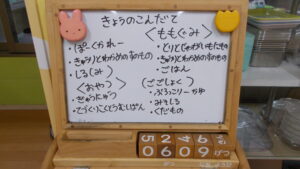 きょうのこんだて
・ぽーくかれー
・きゅうりとわかめのすのもの
・しるしみ
〈おやつ〉
・ぎゅうにゅう
・てづくりこくとうむしぱん
〈ももぐみ〉
・とりとじゃがいもたきもの
・きゅうりとわかめのすのもの
・ごはん
〈ごごしょく〉
・みそしる
・くだもの
5 2 4 6
0 6 0 9